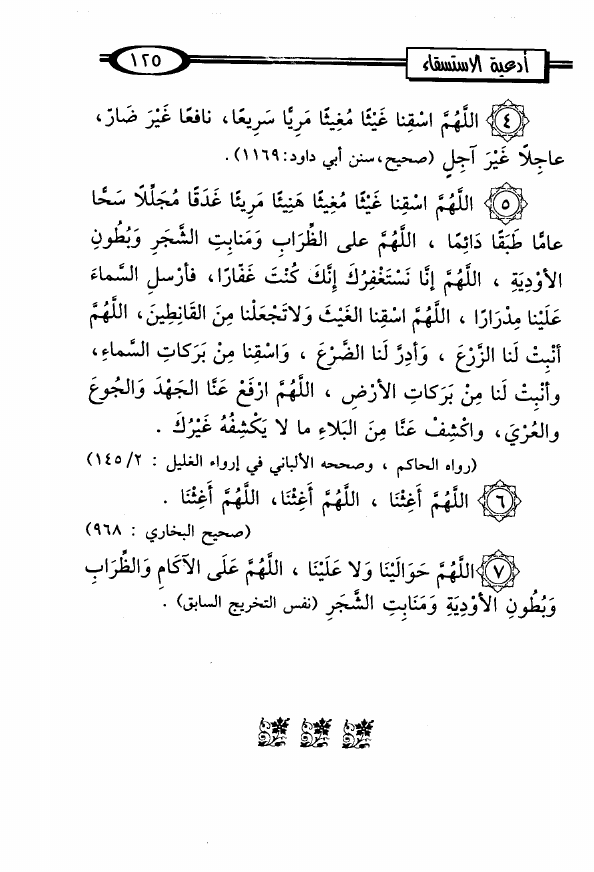 أدعية الاستسقاء
١٢٥
٤ اللَّهُمَّ اسْقِنا غَيْثًا مُغِيثًا مَرِيًّا سَرِيعًا، نافعًا غَيْرَ ضَارّ،
عاجِلًا غَيْرَ آجِلٍ (صحيح،سنن أبي داود:١١٦٩).
٥ اللَّهُمَّ اسْقِنا غَيْثًا مُغِيثًا هَنِيئًا مَرِيئًا غَدَقًا مُجَلِّلًا سَحًّا
عامًّا طَبَقًا دَائِمًا ، اللَّهُمَّ على الظِّرَابِ وَمَنابِتِ الشَّجَرِ وَبُطُونِ
الأوْدِيَةِ ، اللَّهُمَّ إنَّا نَسْتَغْفِرُكَ إنَّكَ كُنْتَ غَفَّارًا، فأرْسلِ السَّماءَ
عَلَيْنا مِدْرَارًا ، اللَّهُمَّ اسْقِنا الغَيْثَ وَلاتَجْعَلْنا مِنَ القَانِطِينَ، اللَّهُمَّ
أنْبِتْ لَنا الزَّرْعَ ، وَأدِرَّ لَنا الضَّرْعَ ، وَاسْقِنا مِنْ بَرَكاتِ السَّماءِ،
وأنْبِتْ لَنا مِنْ بَرَكاتِ الأرْضِ ، اللَّهُمَّ ارْفَعْ عَنَّا الجَهْدَ وَالجُوعَ
والعُرْيَ، واكْشِفْ عَنَّا مِنَ البَلاءِ ما لا يَكْشِفُهُ غَيْرُكَ .
(رواه الحاكم ، وصححه الألباني في إرواء الغليل : ١٤٥/٢)
٦ اللَّهُمَّ أَغِثْنَا ، اللَّهُمَّ أَغِثْنَا، اللَّهُمَّ أَغِثْنَا .
(صحيح البخاري : ٩٦٨)
٧ اللَّهُمَّ حَوَالَيْنَا وَلا عَلَيْنَا ، اللَّهُمَّ عَلَى الآكَامِ وَالظِّرَابِ
وَبُطُونِ الأوْدِيَةِ وَمَنَابِتِ الشَّجَرِ (نفس التخريج السابق) .